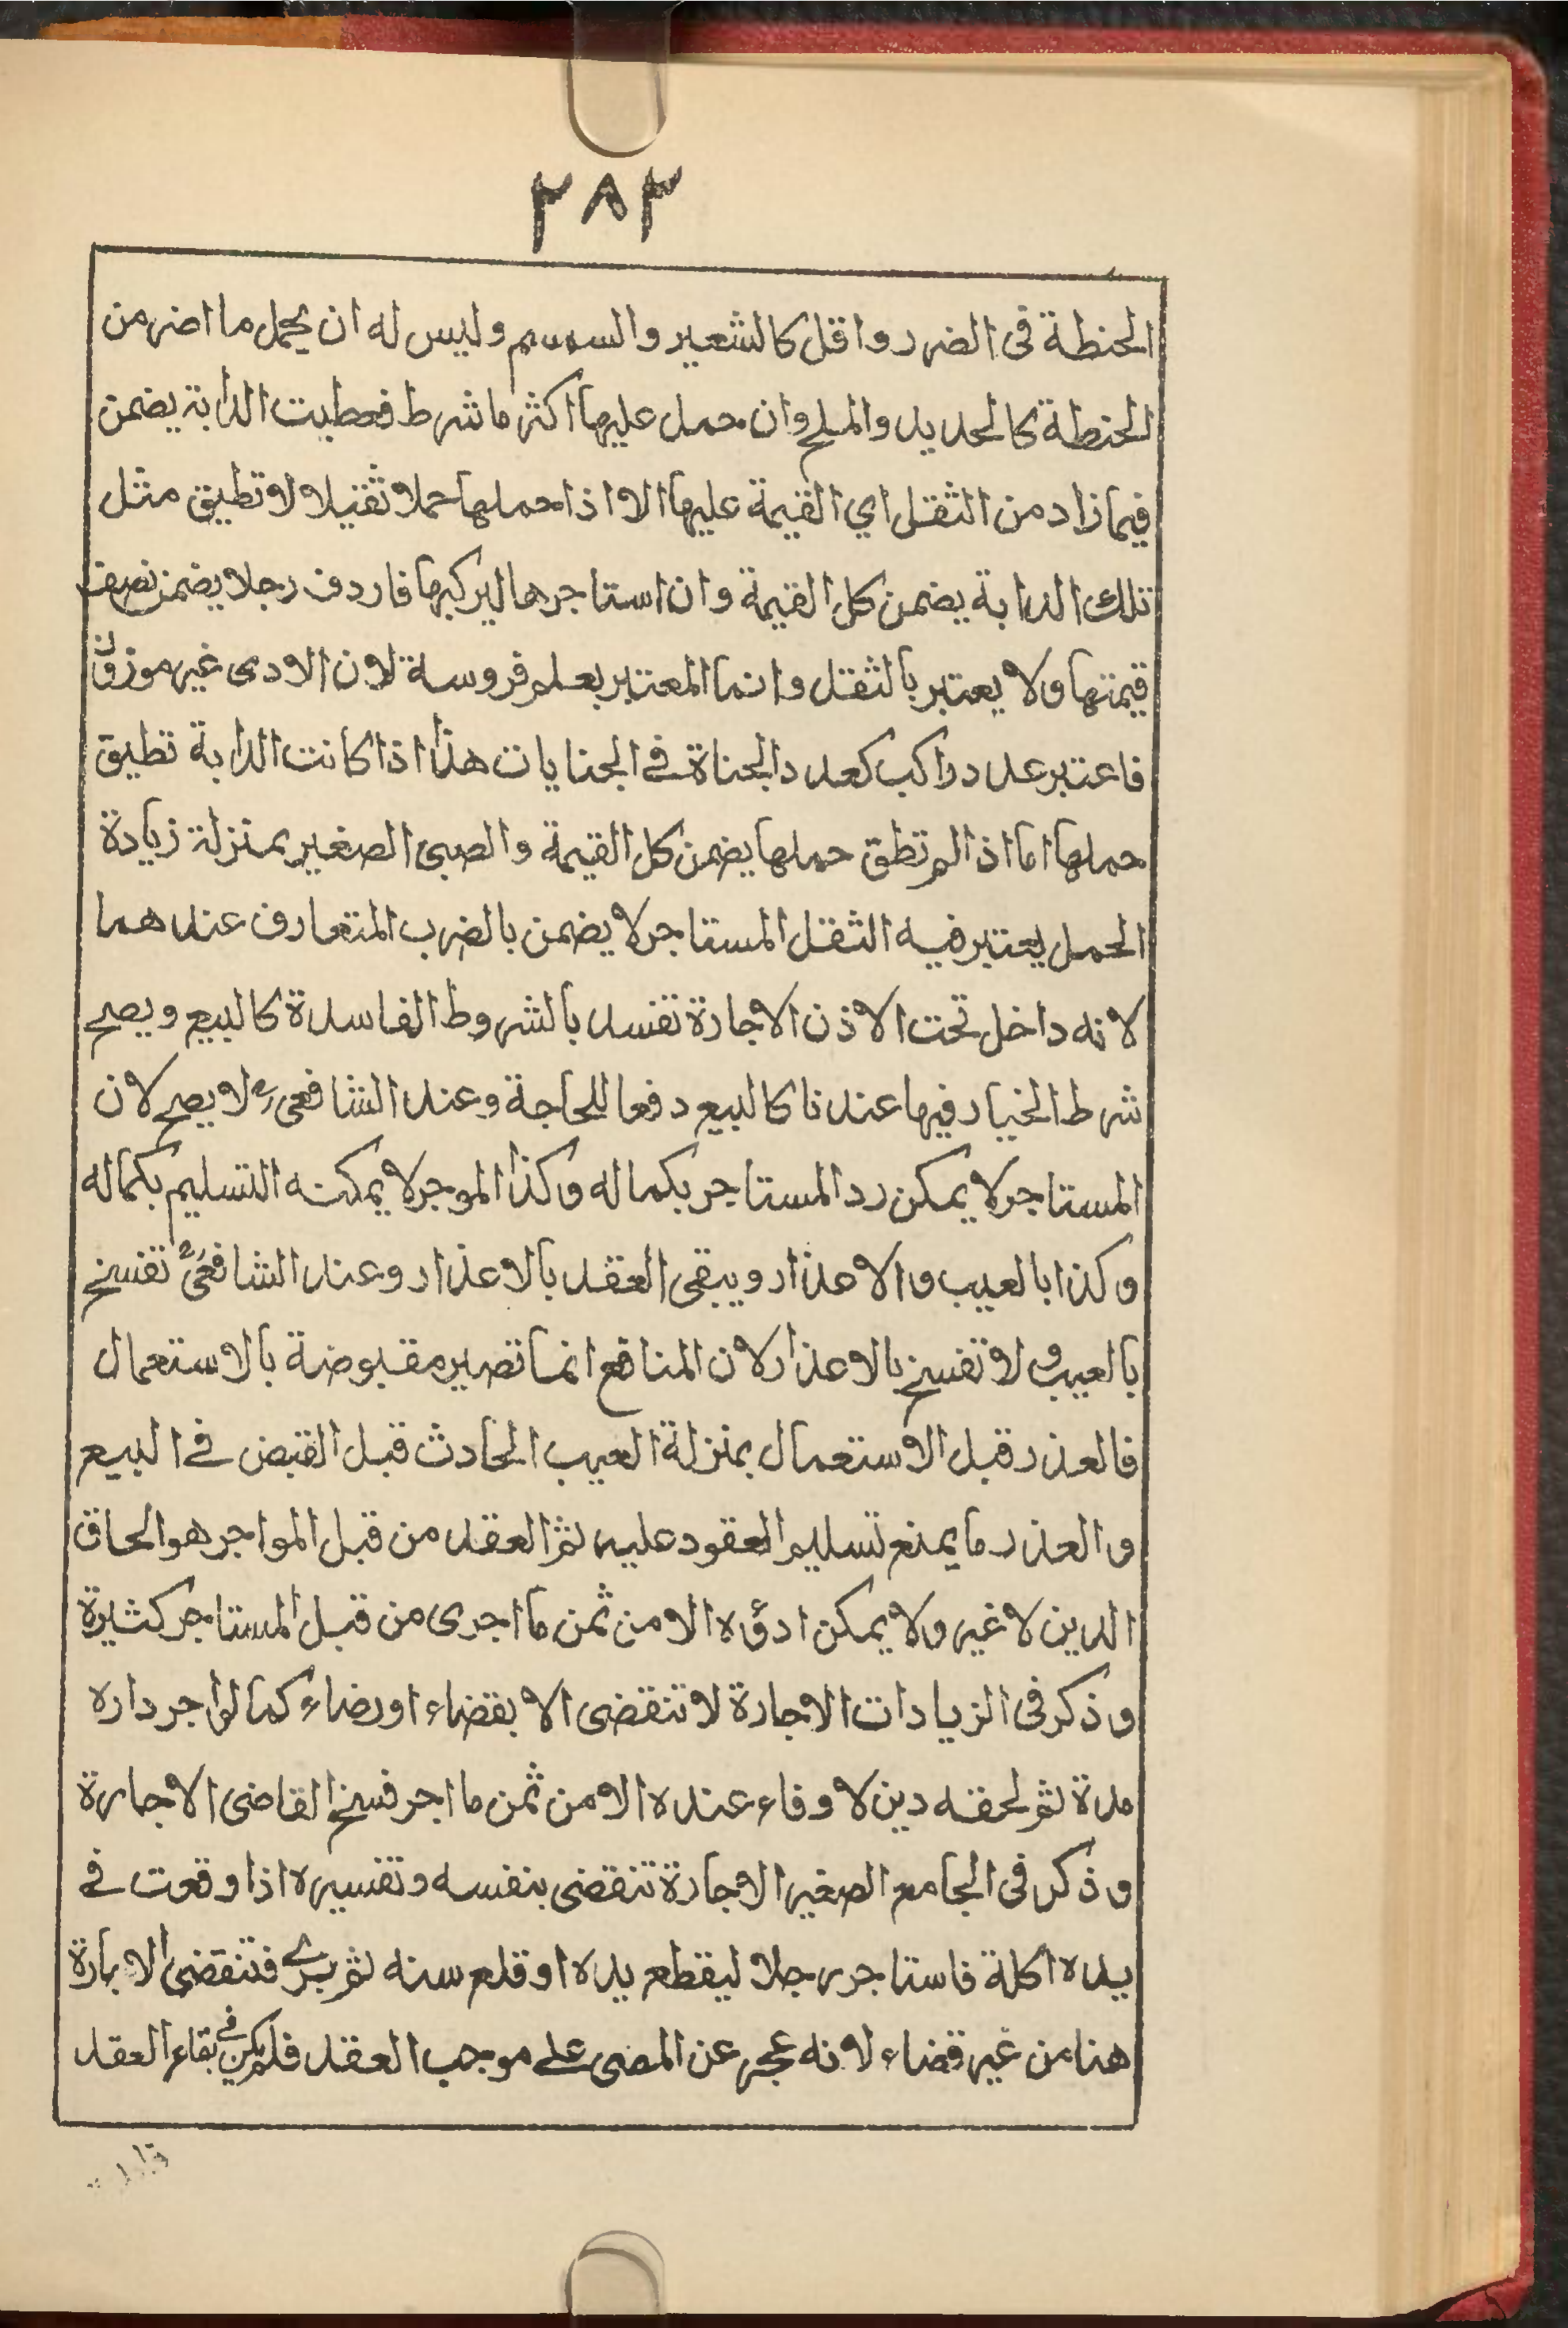 ٢٨٣
الحنطة فى الضرر واقل كالشعير والسمسم وليس له ان يحمل ما اضر من
الحنطة كالحديد والملح وان حمل عليها اكثر ما شرط فعطبت الدابة يضمن
فيما زاد من الثقل اي القيمة عليها الا اذا حملها حملا ثقيلا لا تطيق مثل
تلك الدابة يضمن كل القيمة وان استاجرها ليركبها فاردف رجلا يضمن نصف
قيمتها ولا يعتبر بالثقل وانما المعتبر بعلم فروسة لان الادمى غير موزون
فاعتبر عدد راكب كعدد الجناة فے الجنايات هذا اذا كانت الدابة تطيق
حملها اما اذا لم تطق حملها يضمن كل القيمة والصبى الصغير بمنزلة زيادة
الحمل يعتبر فيه الثقل المستاجر لا يضمن بالضرب المتعارف عندهما
لانه داخل تحت الاذن الاجارة تفسد بالشروط الفاسدة كالبيع ويصح
شرط الخيار فيها عندنا كالبيع دفعا للحاجة وعند الشافعى رح لا يصح لان
المستاجر لا يمكن رد المستاجر بكماله وكذا الموجر لا يمكنه التسليم بكماله
وكذا بالعيب والاعذار ويبقى العقد بالاعذار وعند الشافعىؒ تفسخ
بالعيب ولا تفسخ بالاعذار لان المنافع انما تصير مقبوضة بالاستعمال
فالعذر قبل الاستعمال بمنزلة العيب الحادث قبل القبض فے البيع
والعذر ما يمنع تسليم العقود عليه ثم العقد من قبل المواجر هو الحاق
الدين لا غير ولا يمكن ادؤه الا من ثمن ما اجرى من قبل المستاجر كثيرة
وذكر فى الزيادات الاجارة لا تنقضى الا بقضاء او رضاء كما لو اجر داره
مدة ثم لحقه دين لا وفاء عنده الا من ثمن ما اجر فسخ القاضى الاجارة
وذكر فى الجامع الصغير الاجارة تنقضى بنفسه وتفسيره اذا وقعت فے
يده اكلة فاستاجر رجلا ليقطع يده او قلع سنه ثم برے فتنقضى الاجارة
هنا من غير قضاء لانه عجز عن المضى علے موجب العقد فلم يكن فے بقاء العقد